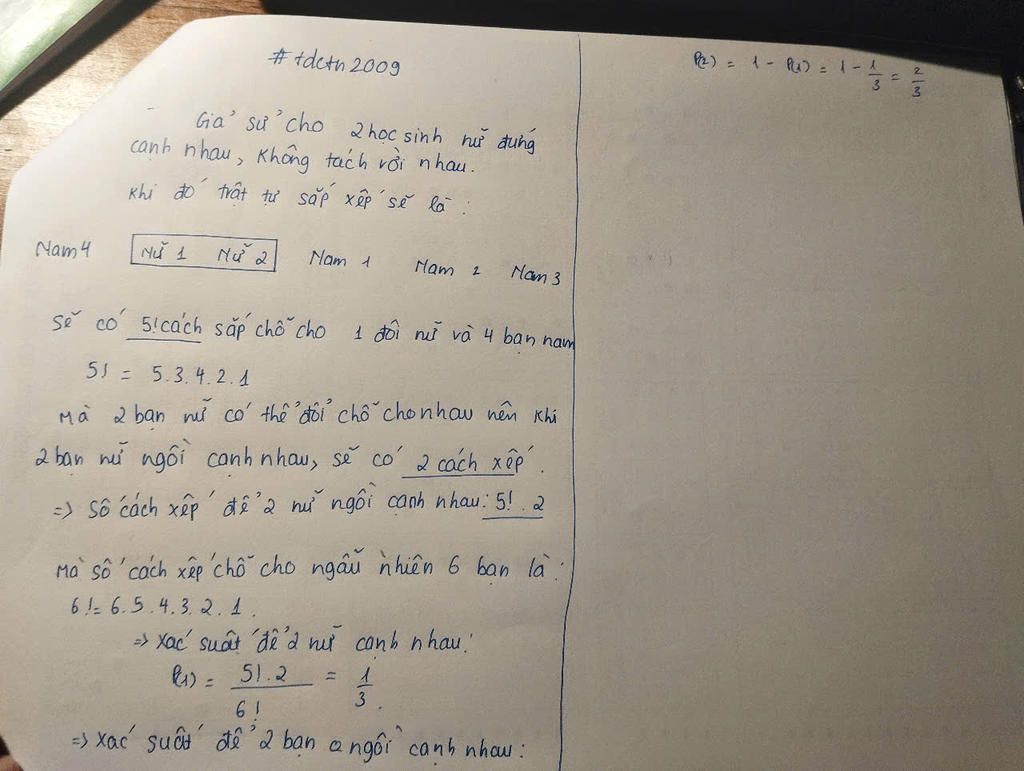 #tdctn2009
Giả sử cho 2 học sinh nữ đứng
cạnh nhau, không tách rời nhau.
Khi đó trật tự sắp xếp sẽ là:
Nam 4 Nữ 1 Nữ 2 Nam 1 Nam 2 Nam 3
Sẽ có 5! cách sắp chỗ cho 1 đôi nữ và 4 bạn nam
5! = 5.3.4.2.1
Mà 2 bạn nữ có thể đổi chỗ cho nhau nên khi
2 bạn nữ ngồi cạnh nhau, sẽ có 2 cách xếp.
=> Số cách xếp để 2 nữ ngồi cạnh nhau: 5!.2
Mà số cách xếp chỗ cho ngẫu nhiên 6 bạn là:
6! = 6.5.4.3.2.1.
=> Xác suất để 2 nữ cạnh nhau:
P(1) = 5!.2 / 6! = 1/3.
=> Xác suất để 2 bạn ngồi cạnh nhau:
P(2) = 1 - P(1) = 1 - 1/3 = 2/3